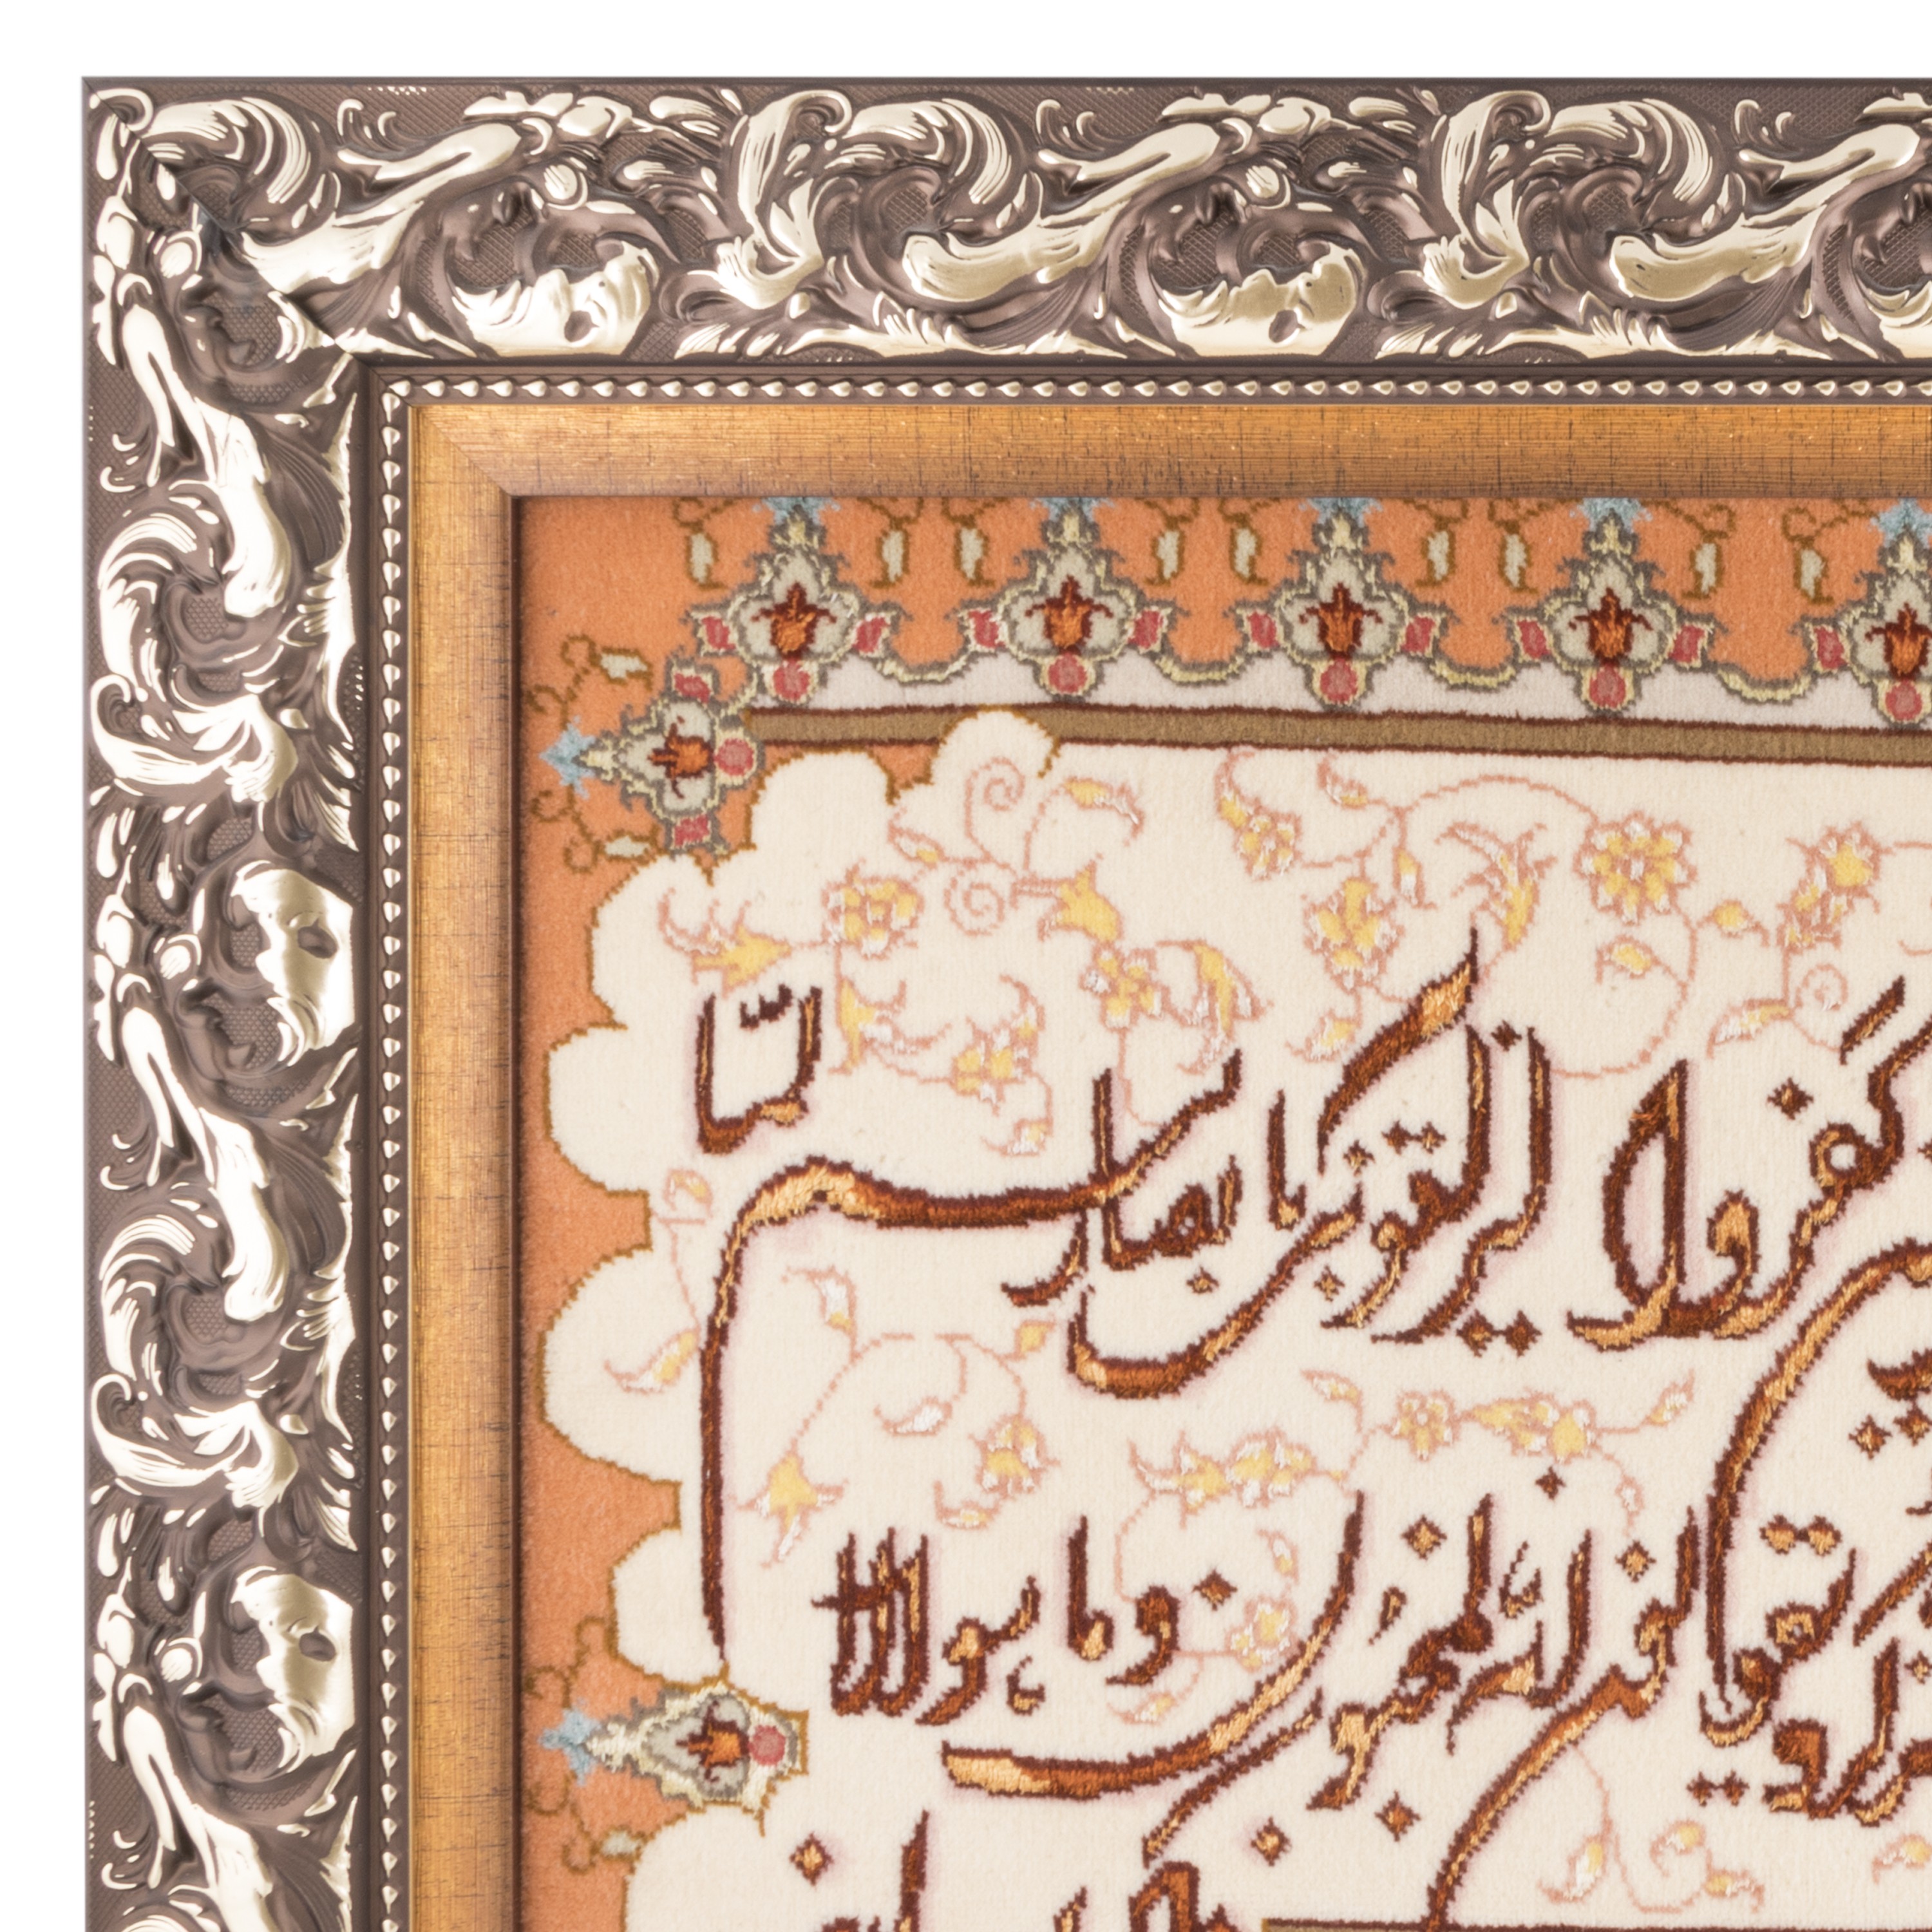 كفروا ليزلقونك بابصارهم لما
ويقولون انه لمجنون وما هو الا